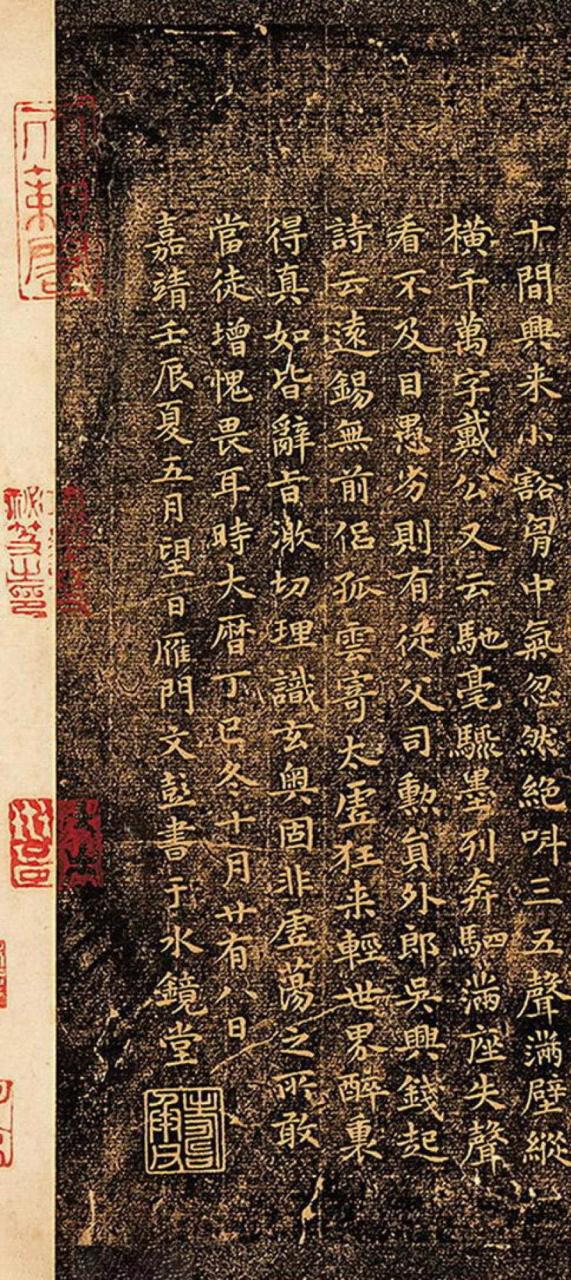 十間興来小豁胷中氣忽然絶呌三五聲滿壁縱
橫千萬字戴公又云馳毫驟墨列奔駟滿座失聲
看不及目愚劣則有從父司勳員外郎吳興錢起
詩云遠錫無前侶孤雲寄太虛狂来輕世界醉裏
得真如皆辭旨激切理識玄奧固非虛蕩之所敢
當徒增愧畏耳時大曆丁巳冬十月廿有八日
嘉靖壬辰夏五月望日雁門文彭書于水鏡堂